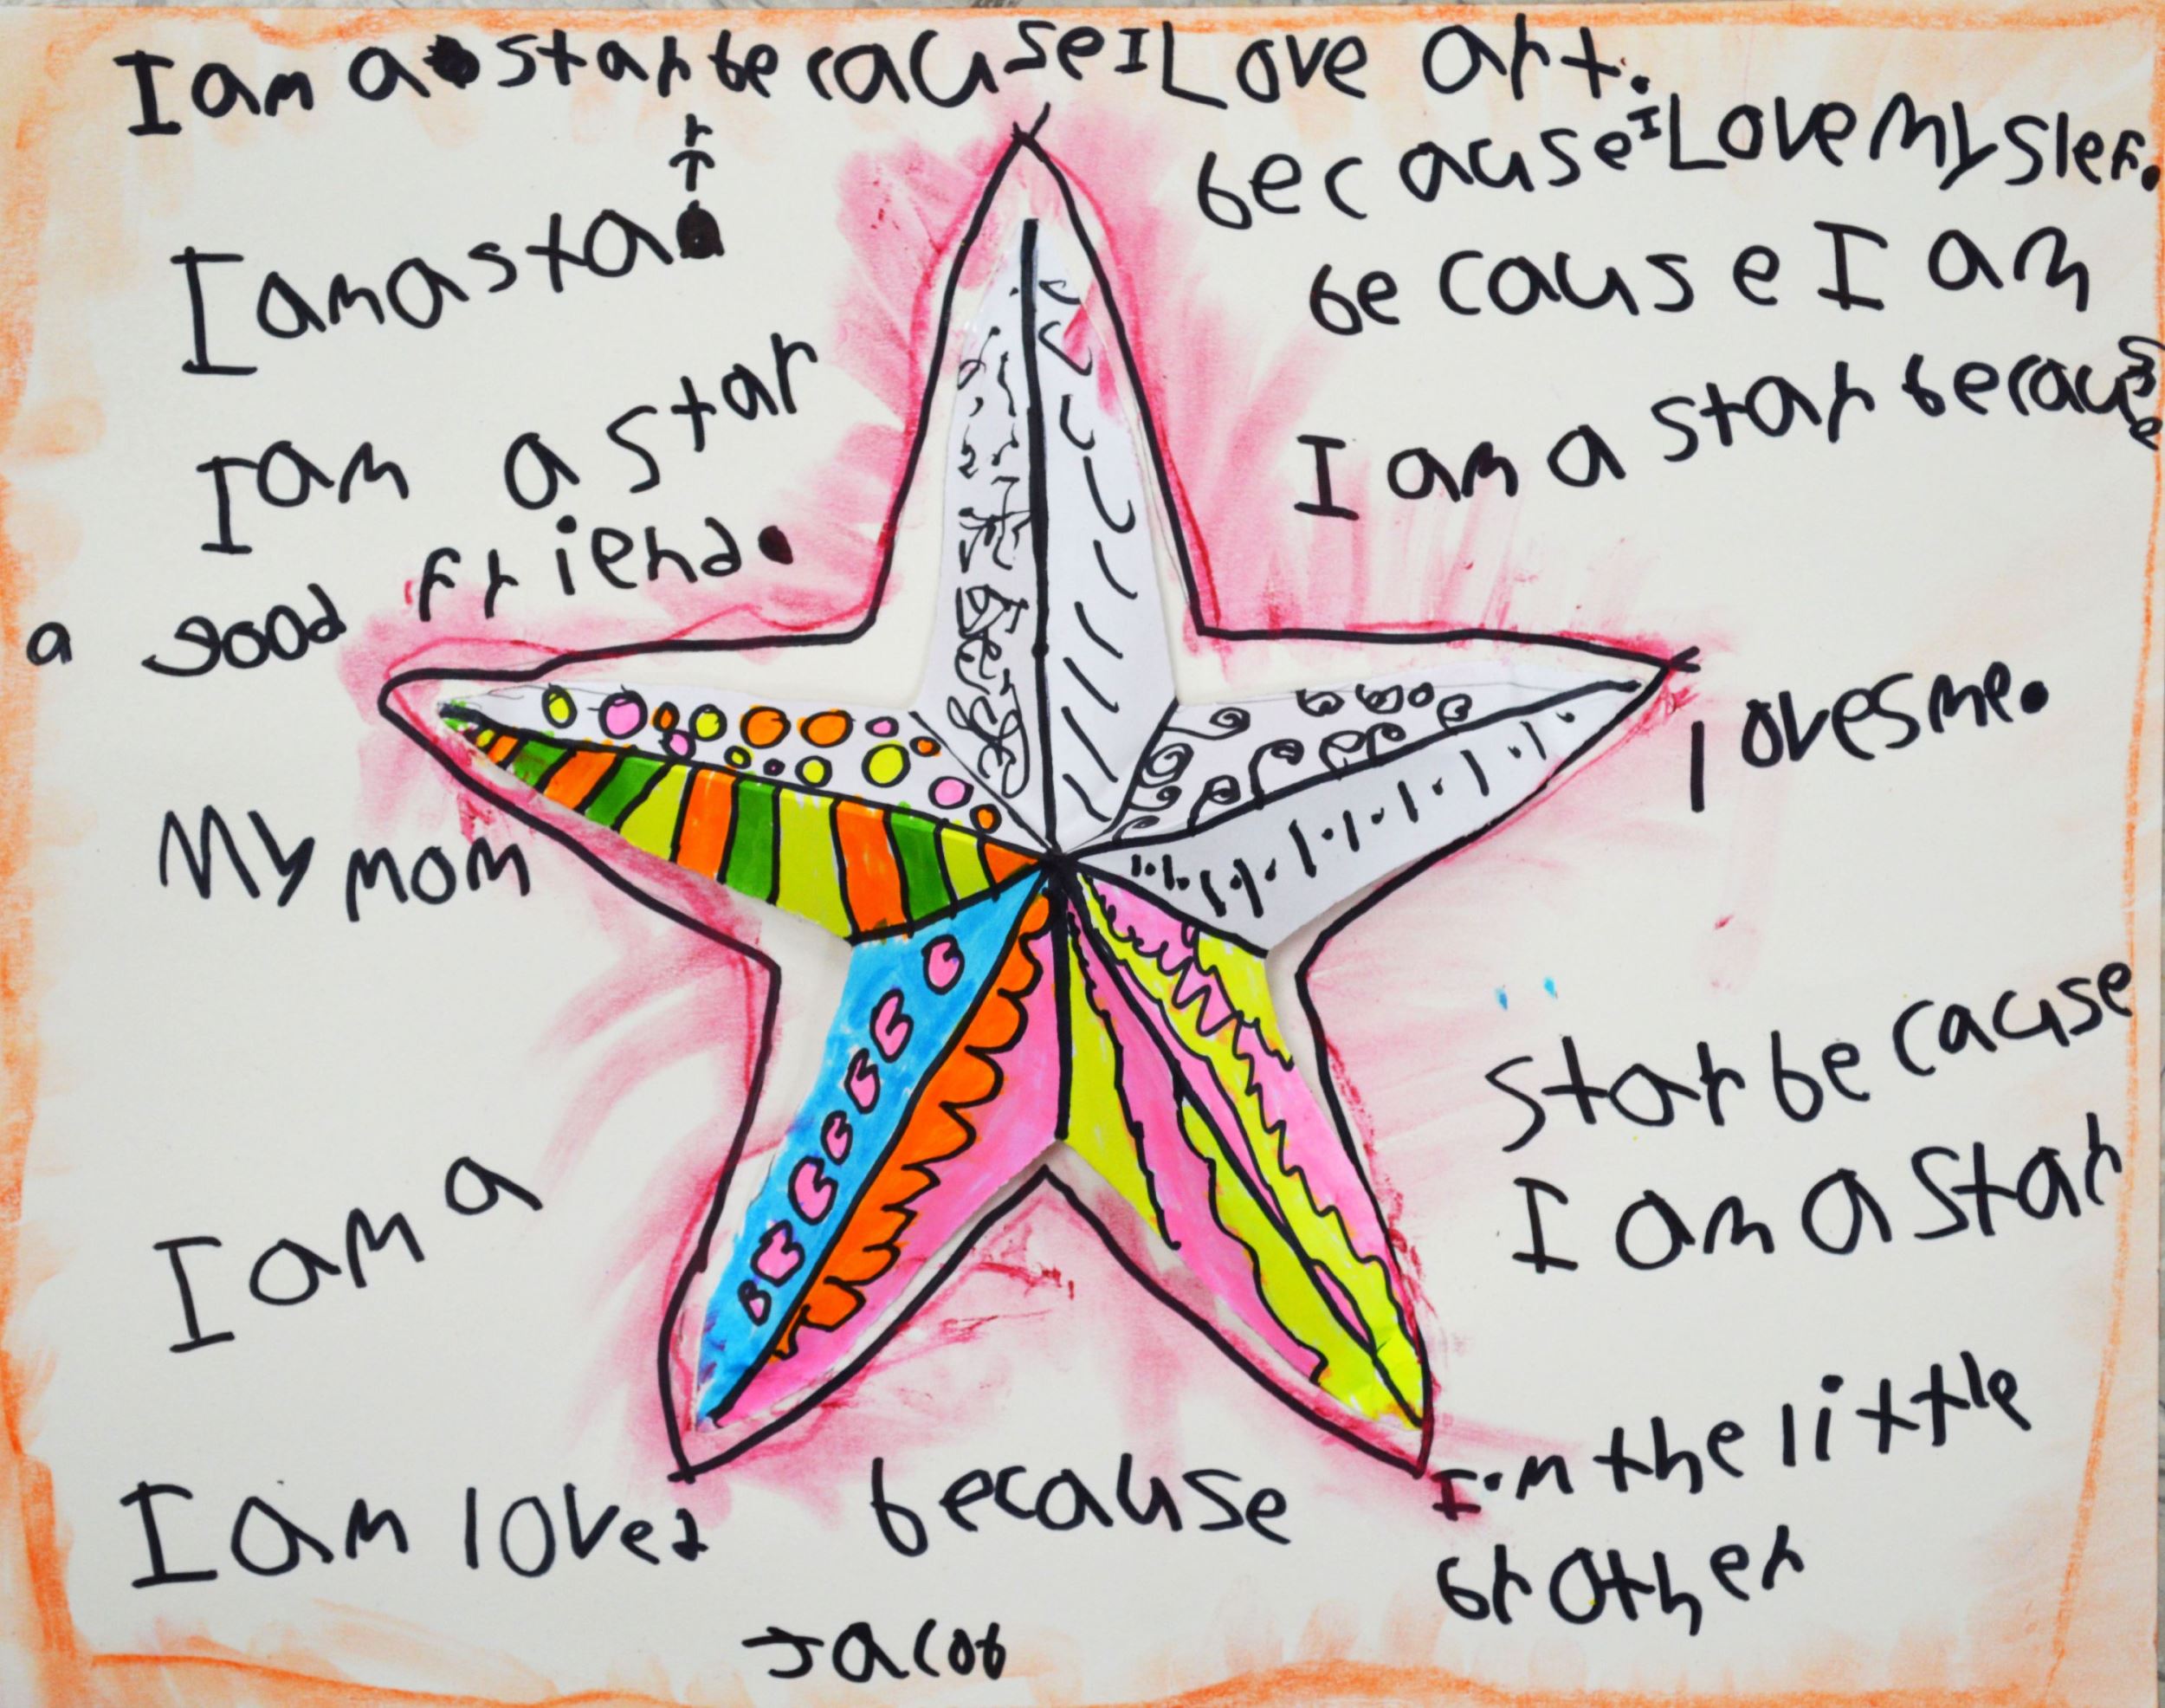 I am a star because I Love art.
I am a star because I Love my slef.
I am a star because I am
a good friend.
I am a star because
My mom lovesme.
I am a star because
I am a star
I am loved because I'm the little
brother
Jacob